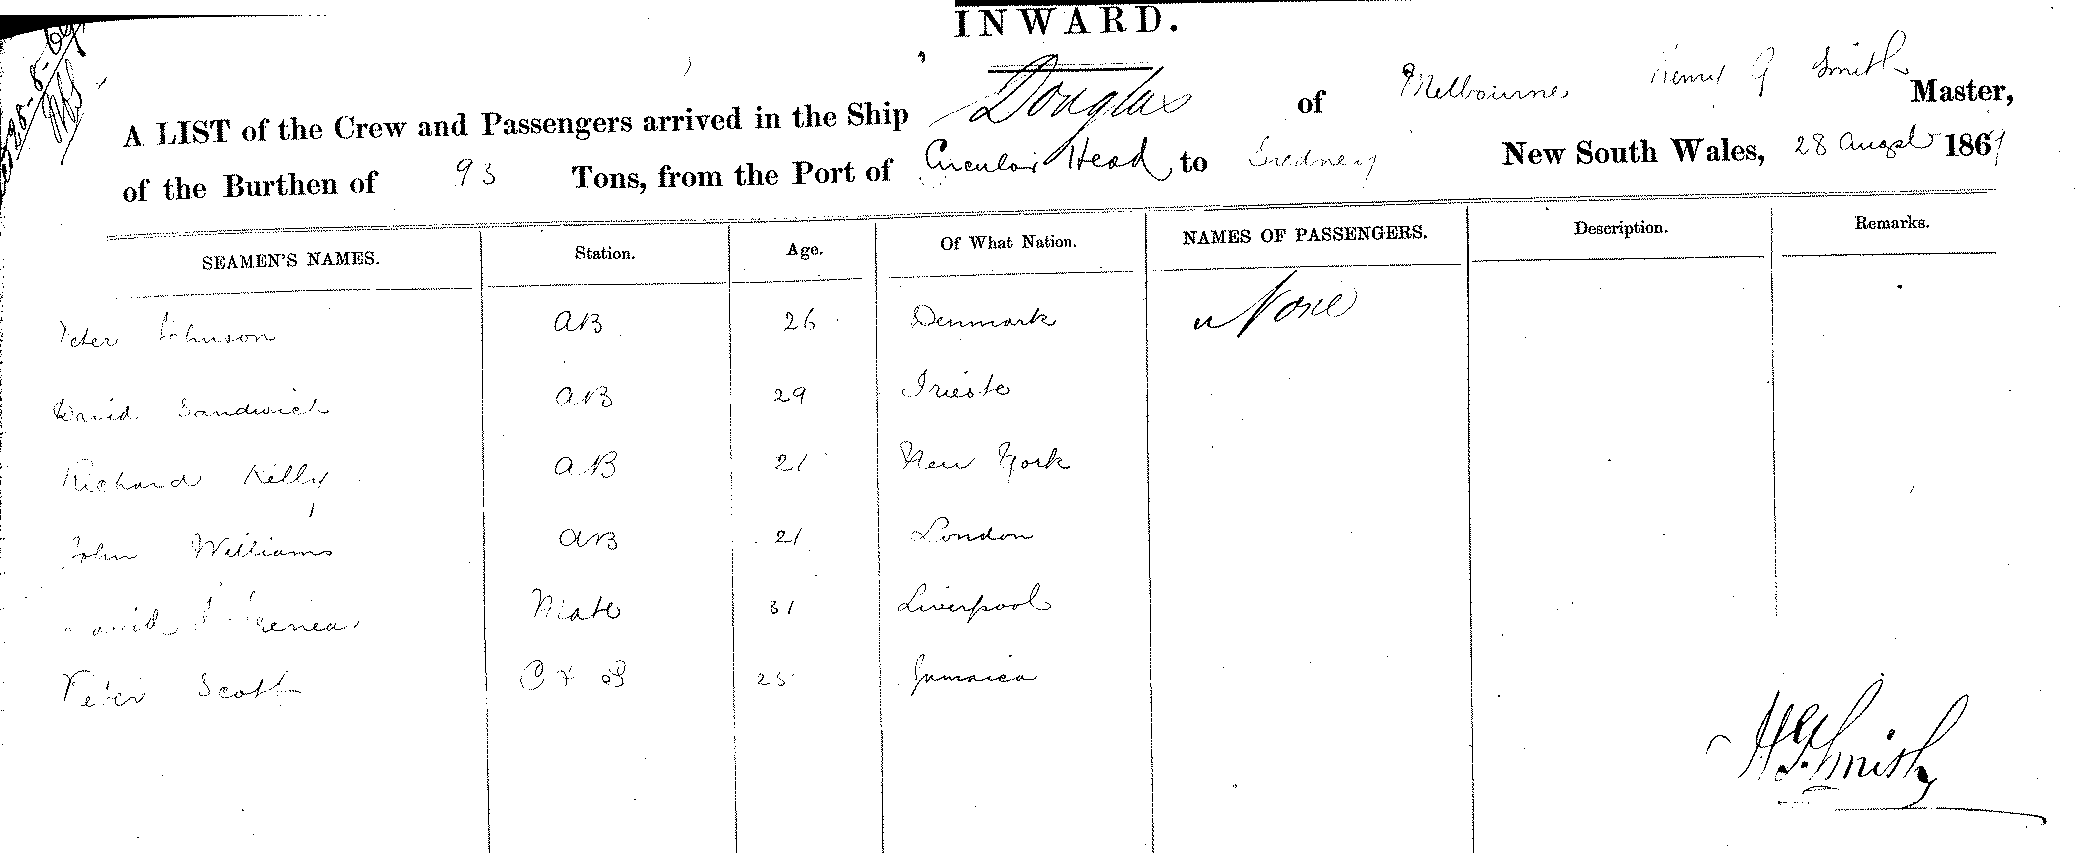 INWARD.
A LIST of the Crew and Passengers arrived in the Ship Douglas of Melbourne Henry G Smith Master,
of the Burthen of 93 Tons, from the Port of Circular Head to Sydney New South Wales, 28 Augst 186
SEAMEN'S NAMES. Station. Age. Of What Nation. NAMES OF PASSENGERS. Description. Remarks.
Peter Johnson AB 26 Denmark None
David Sandwich AB 29 Trieste
Richard Kelly AB 21 New York
John Williams AB 21 London
David Mate 31 Liverpool
Peter Scott C & S 25 Jamaica
H G Smith